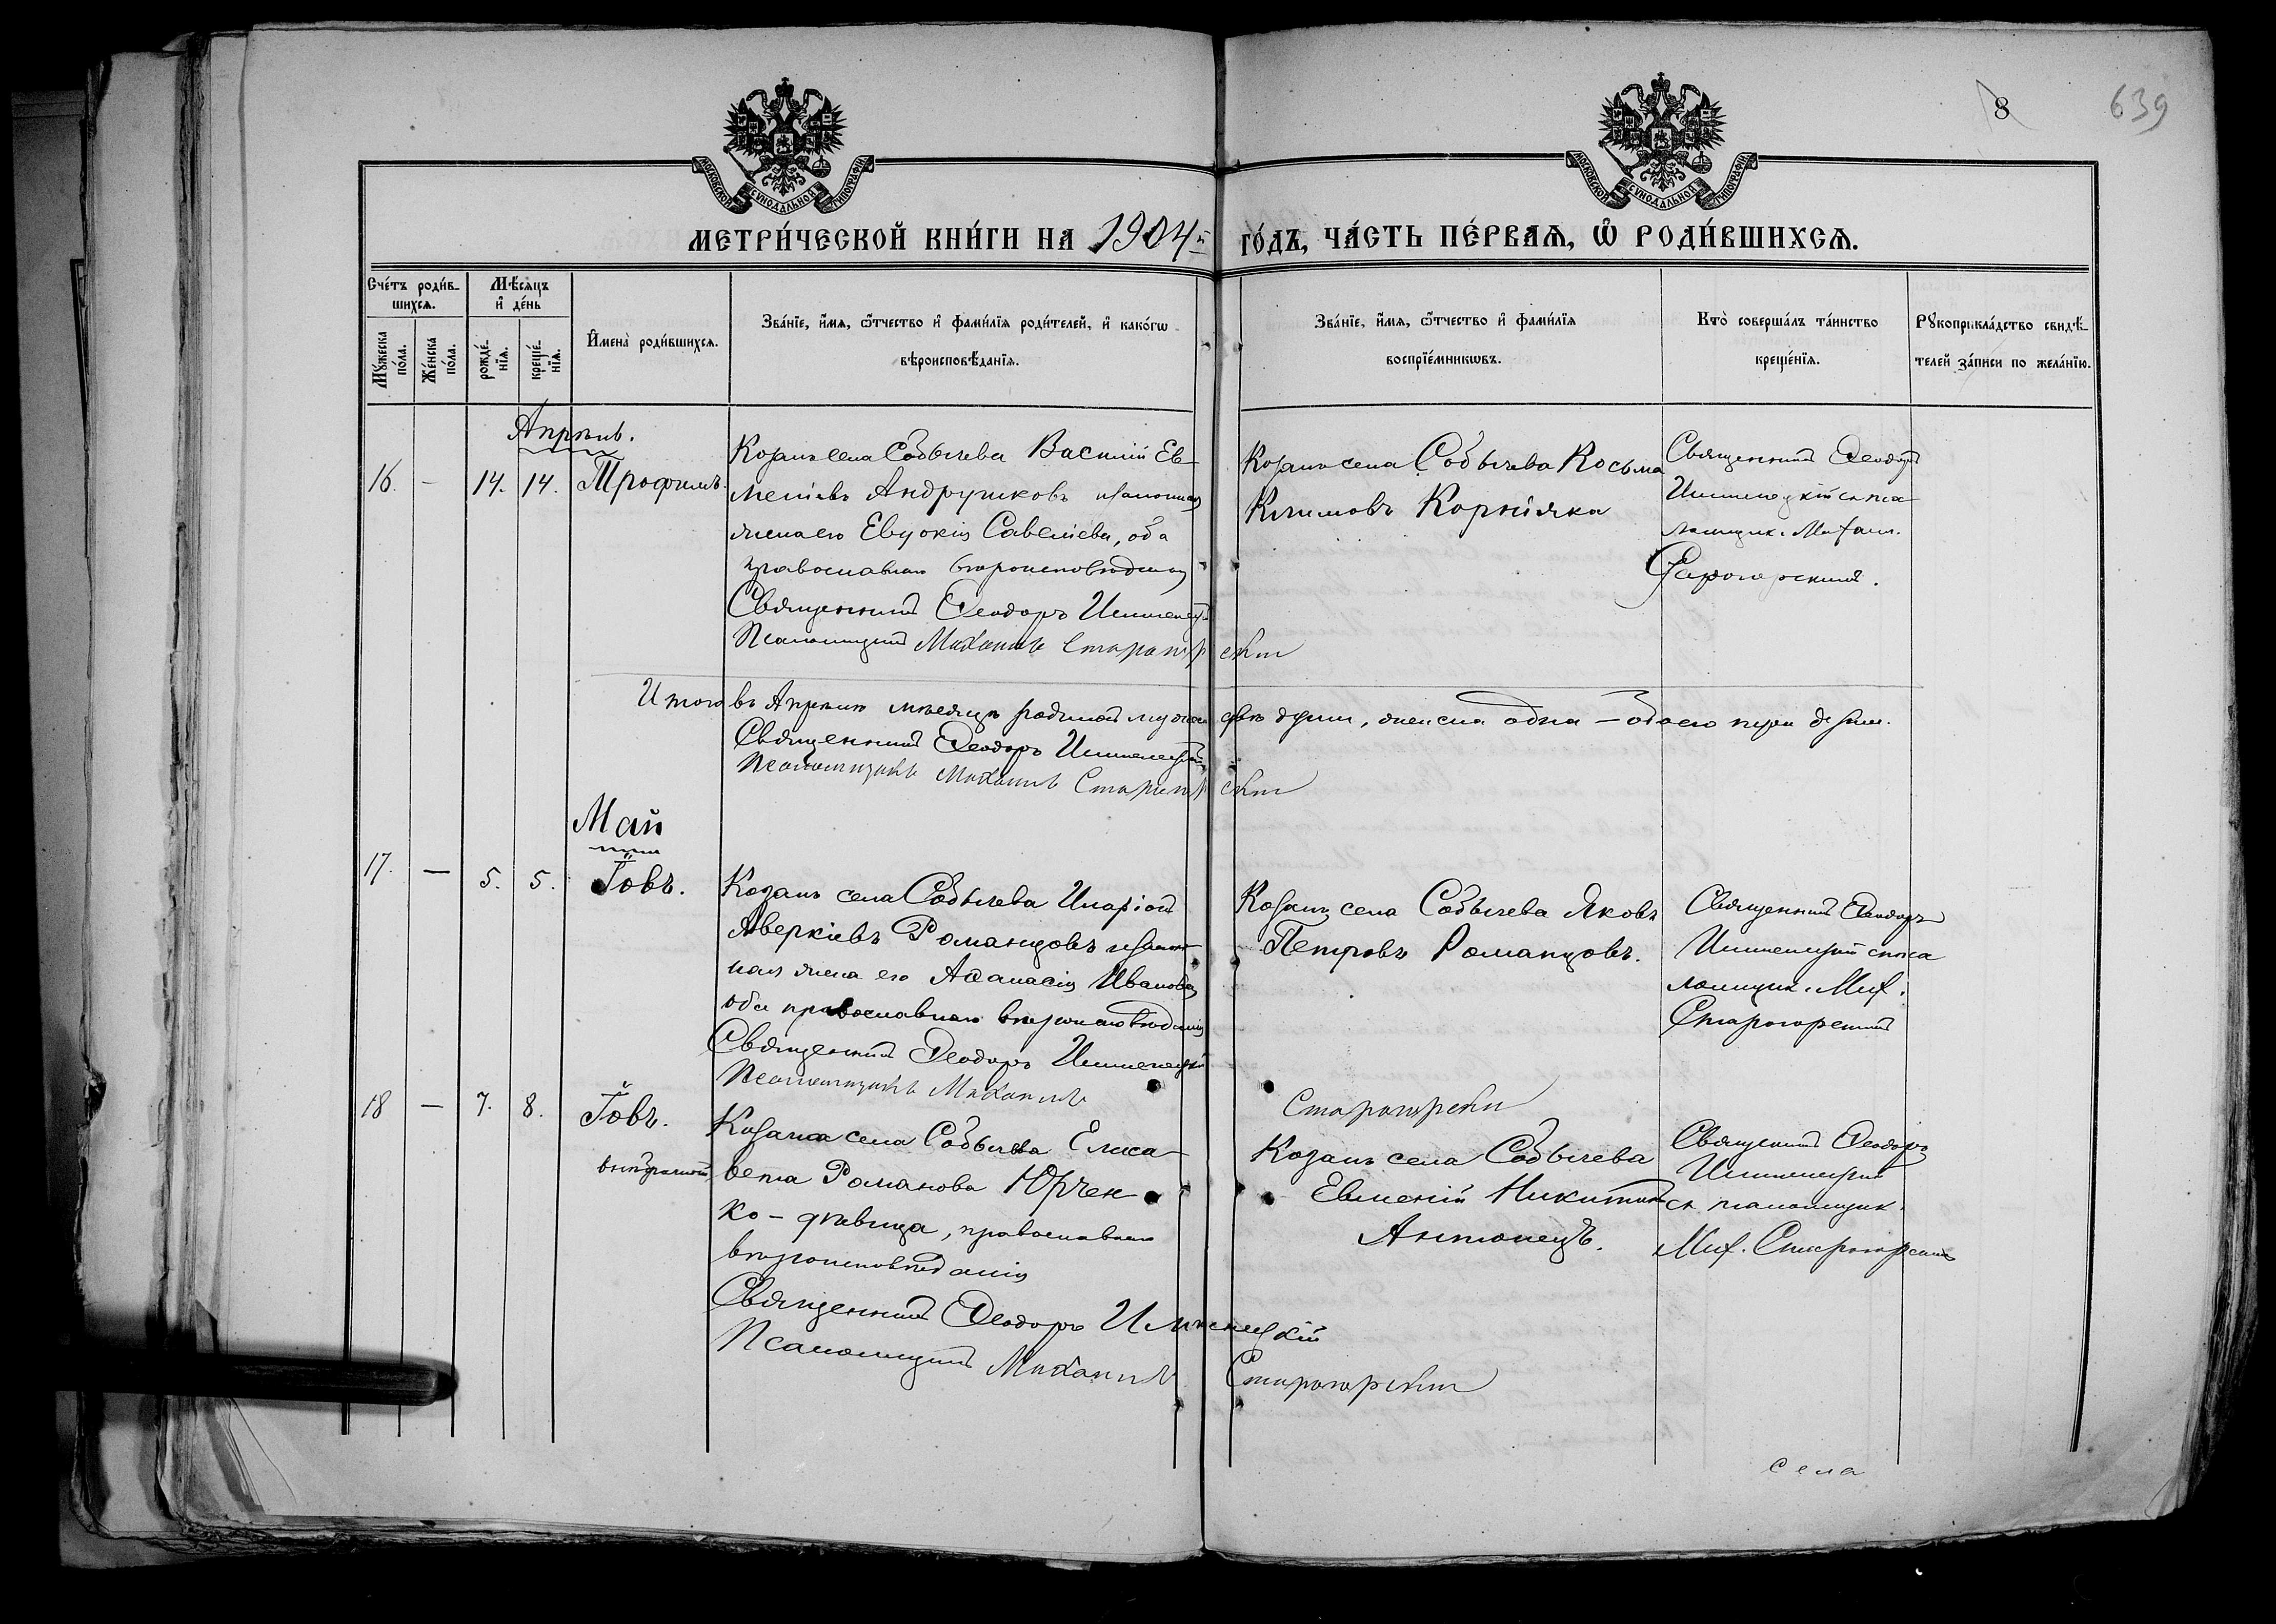 8
639
МОСКОВСКОЙ СѴНОДАЛЬНОЙ ТИПОГРАФІИ
МОСКОВСКОЙ СѴНОДАЛЬНОЙ ТИПОГРАФІИ
МЕТРИ́ЧЕСКОЙ КНИ́ГИ НА 1904й го́дъ, ча́сть пе́рваѧ, ѽ роди́вшихсѧ.
Сче́тъ роди́в-
шихсѧ.
Мꙋ́жеска по́ла.
Же́нска по́ла.
Мѣ́сѧцъ
и҆ де́нь
рожде́-
нїѧ.
креще́-
нїѧ.
И҆мена̀ роди́вшихсѧ.
Зва́нїе, и҆́мѧ, ѻ҆́тчество и҆ фами́лїѧ роди́телей, и҆ како́гѡ
вѣроисповѣ́данїѧ.
Зва́нїе, и҆́мѧ, ѻ҆́тчество и҆ фами́лїѧ
воспрїе́мникѡвъ.
Кто̀ соверша́лъ та́инство
креще́нїѧ.
Рꙋкоприкла́дство свидѣ́-
телей за́писи по жела́нїю.
Апрѣль.
16. – 14. 14. Трофимъ.
Козакъ села Собычева Василій Ев-
меніевъ Андрущковъ и законная
жена его Евдокія Савеліева, оба
православнаго вѣроисповѣданія
Священникъ Ѳеодоръ
Псаломщикъ Михаилъ Старогорскій
Козакъ села Собычева Косьма
Климовъ Корнійка
Священникъ Ѳеодоръ
съ пса-
ломщик. Михаил.
Старогорскимъ.
Итого въ Апрѣлѣ мѣсяцѣ родилось мужеска двѣ души, женска одна – обоего пола
Священникъ Ѳеодоръ
Псаломщикъ Михаилъ Старогорскій
Май
17. — 5. 5. Іовъ.
Козакъ села Собычева Иларіонъ
Аверкіевъ Романцовъ и закон-
ная жена его Аѳанасія Иванова
оба православнаго вѣроисповѣданія
Священникъ Ѳеодоръ
Псаломщикъ Михаилъ Старогорскій
Козакъ села Собычева Яковъ
Петровъ Романцовъ.
Священникъ Ѳеодоръ
съ пса
ломщик. Мих.
Старогорскимъ
18 — 7. 8. Іовъ.
внѣбрачный
Козачка села Собычева Елиса-
вета Романова Юрчен
ко – дѣвица, православнаго
вѣроисповѣданія
Священникъ Ѳеодоръ
Псаломщикъ Михаилъ Старогорскій
Козакъ села Собычева
Евменій Никитинъ
Антонецъ.
Священникъ Ѳеодоръ
съ псаломщик.
Мих. Старогорскимъ
села